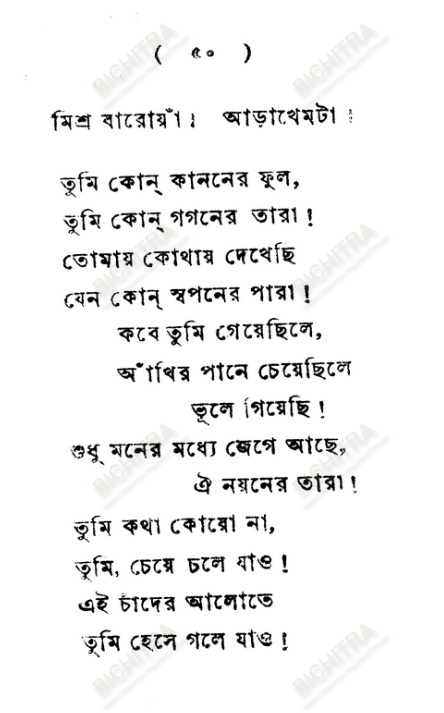 ( ৫০ )
মিশ্র বারোয়াঁ। আড়াখেমটা।
তুমি কোন্ কাননের ফুল,
তুমি কোন্ গগনের তারা!
তোমায় কোথায় দেখেছি
যেন কোন্ স্বপনের পারা!
কবে তুমি গেয়েছিলে,
আঁখির পানে চেয়েছিলে
ভূলে গিয়েছি!
শুধু মনের মধ্যে জেগে আছে,
ঐ নয়নের তারা!
তুমি কথা কোয়ো না,
তুমি, চেয়ে চলে যাও!
এই চাঁদের আলোতে
তুমি হেসে গলে যাও!
BICHITRA